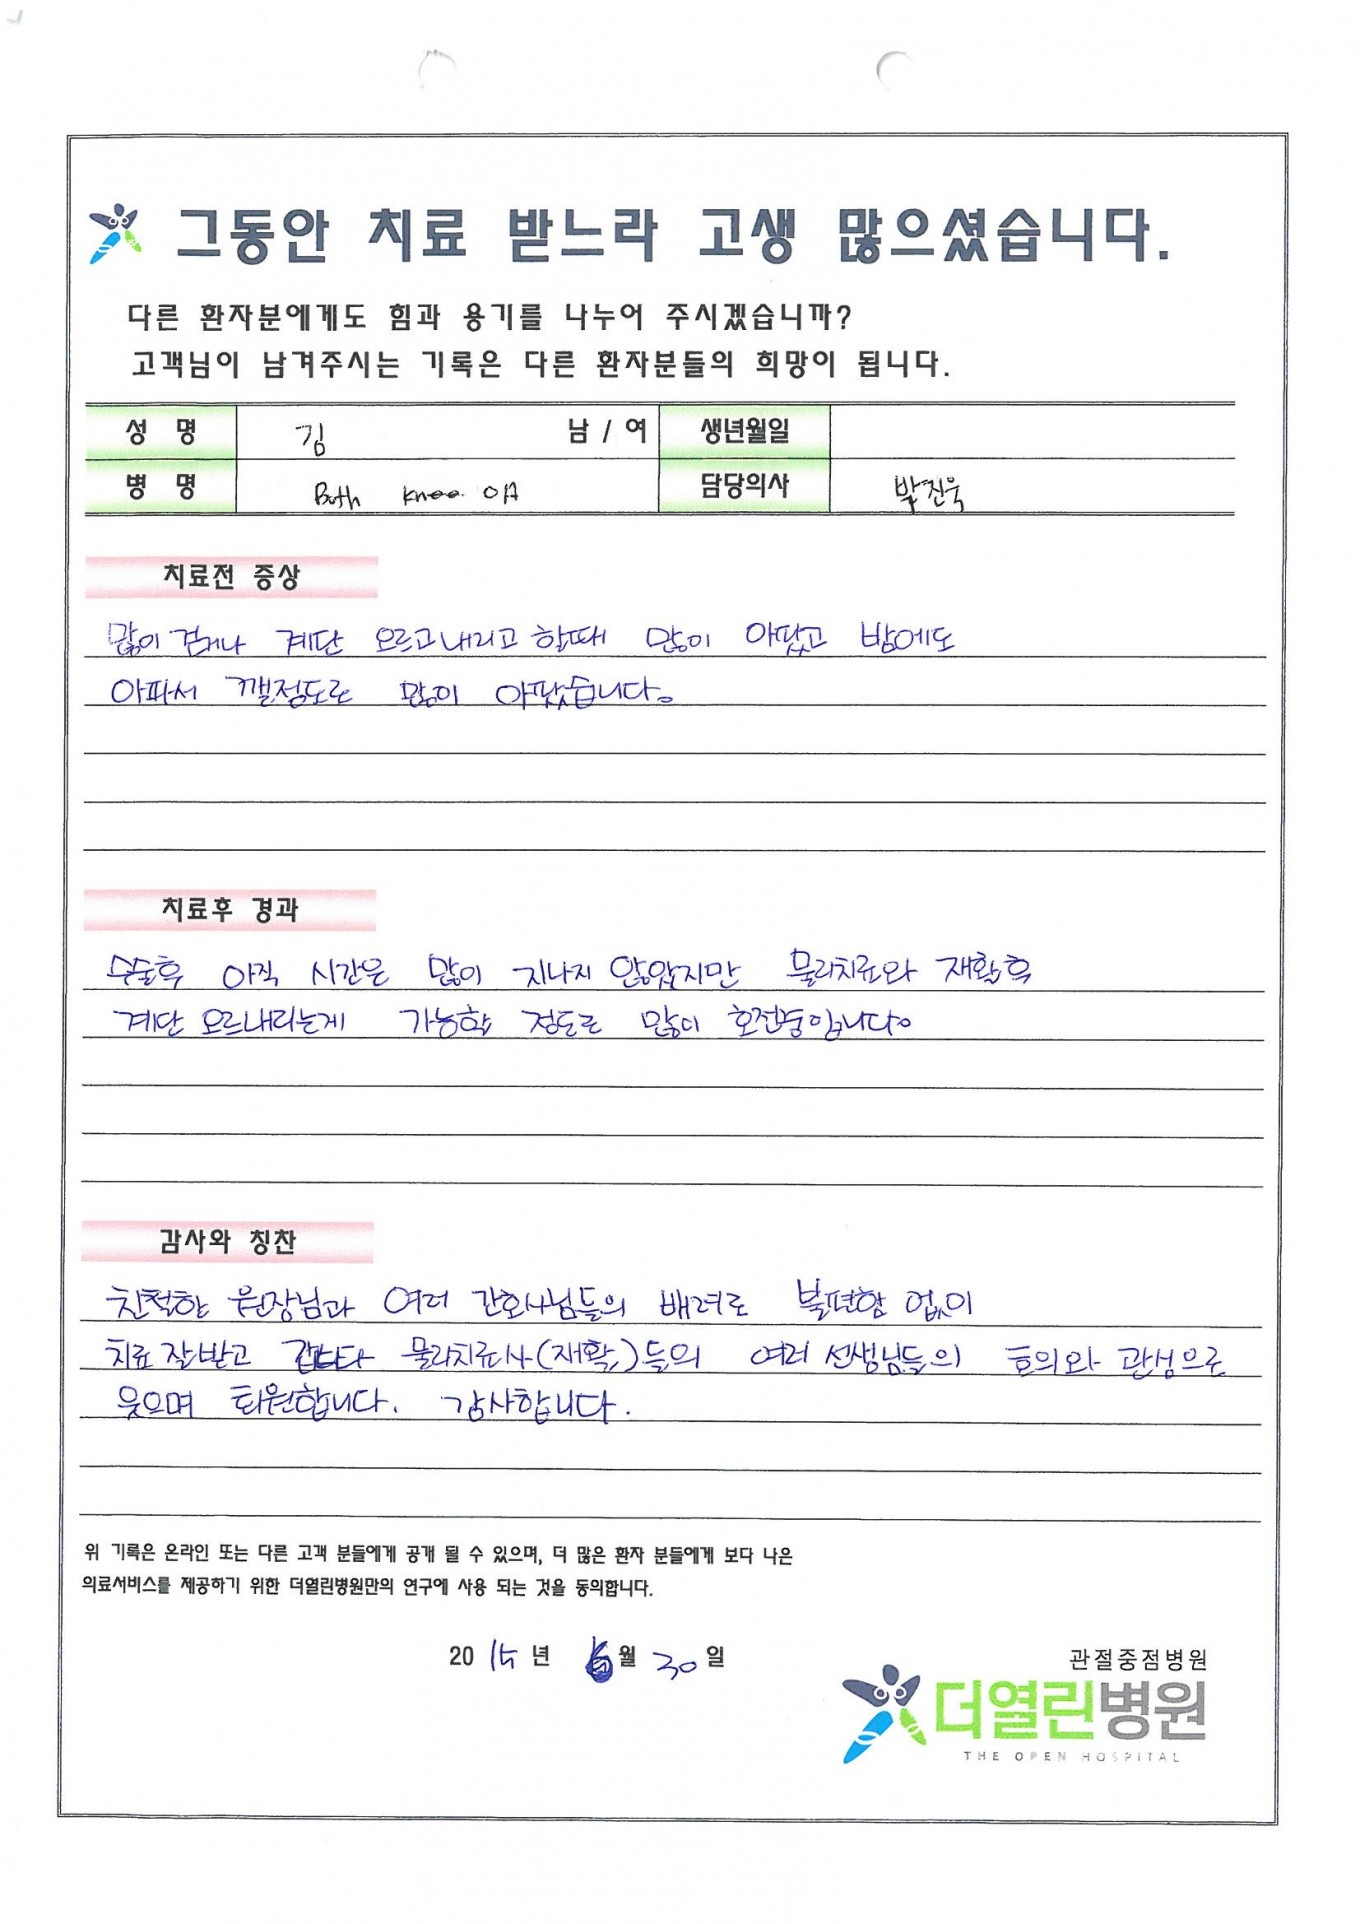 그동안 치료 받느라 고생 많으셨습니다.
다른 환자분에게도 힘과 용기를 나누어 주시겠습니까?
고객님이 남겨주시는 기록은 다른 환자분들의 희망이 됩니다.
성 명 김 남 / 여 생년월일
병 명 Both knee OA 담당의사 박진욱
치료전 증상
많이 걷거나 계단 오르고내리고 할때 많이 아팠고 밤에도
아파서 깰정도로 많이 아팠습니다.
치료후 경과
수술후 아직 시간은 많이 지나지 않았지만 물리치료와 재활후
계단 오르내리는게 가능할 정도로 많이 호전중입니다.
감사와 칭찬
친절한 원장님과 여러 간호사님들의 배려로 불편함 없이
치료 잘받고 갑니다 물리치료사(재활)들의 여러 선생님들의 호의와 관심으로
웃으며 퇴원합니다. 감사합니다.
위 기록은 온라인 또는 다른 고객 분들에게 공개 될 수 있으며, 더 많은 환자 분들에게 보다 나은
의료서비스를 제공하기 위한 더열린병원만의 연구에 사용 되는 것을 동의합니다.
2015년 6월 30일
관절중점병원
더열린병원
THE OPEN HOSPITAL